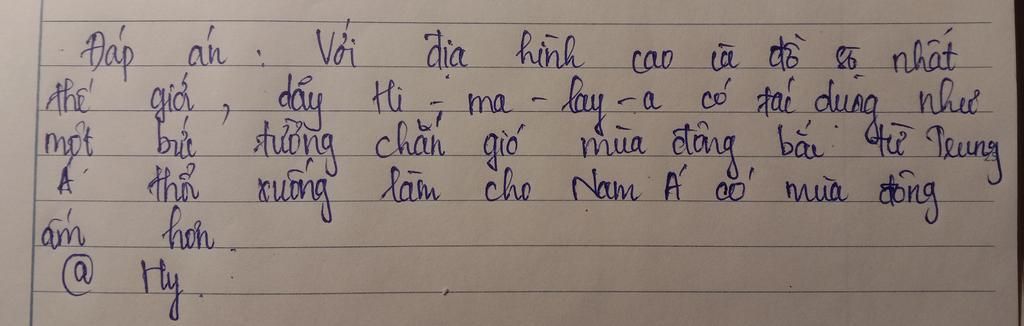 Đáp án : Với địa hình cao và đồ sộ nhất
thế giới, dãy Hi - ma - lay - a có tác dụng như
một bức tường chắn gió mùa đông bắc từ Trung
Á thổi xuống làm cho Nam Á có mùa đông
ấm hơn.
@ Hy.